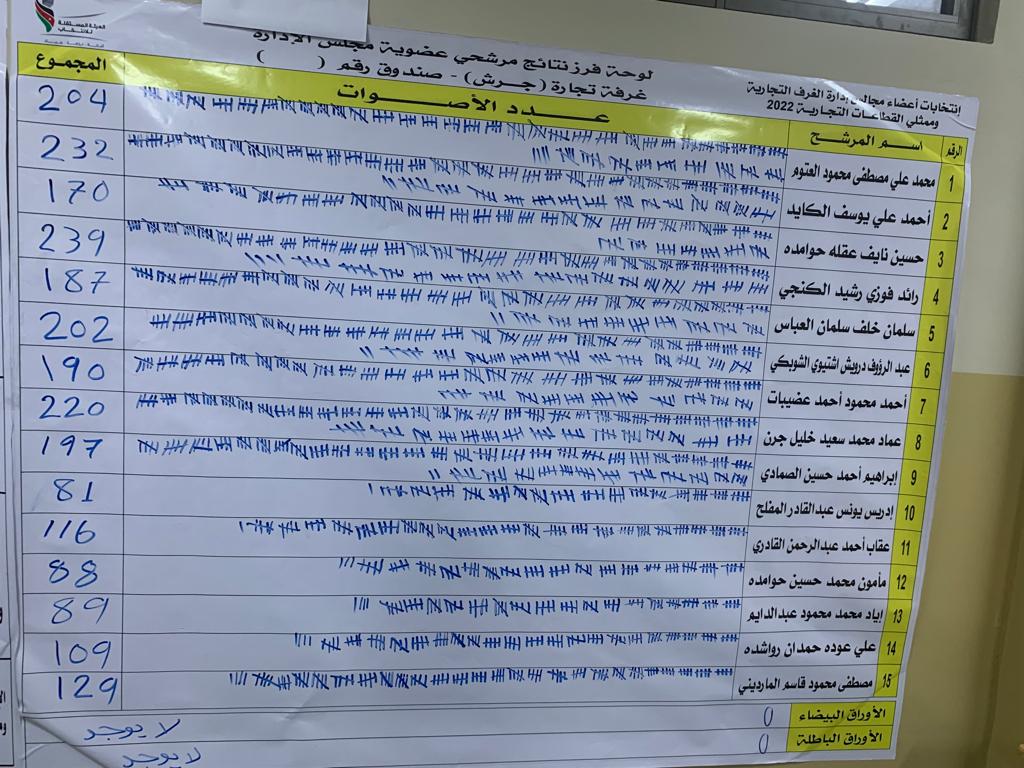 الهيئة المستقلة
للانتخاب
لوحة فرز نتائج مرشحي عضوية مجلس الإدارة
غرفة تجارة (جرش) - صندوق رقم (          )
انتخابات أعضاء مجالس إدارة الغرف التجارية
وممثلي القطاعات التجارية 2022
الرقم اسم المرشح عدد الأصوات المجموع
1 محمد علي مصطفى محمود العتوم 204
2 أحمد علي يوسف الكايد 232
3 حسين نايف عقله حوامده 170
4 رائد فوزي رشيد الكنجي 239
5 سلمان خلف سلمان العباس 187
6 عبد الرؤوف درويش اشتيوي الشوبكي 202
7 أحمد محمود أحمد عضيبات 190
8 عماد محمد سعيد خليل جرن 220
9 ابراهيم أحمد حسين الصمادي 197
10 إدريس يونس عبدالقادر المفلح 81
11 عقاب أحمد عبدالرحمن القادري 116
12 مأمون محمد حسين حوامده 88
13 اياد محمد محمود عبدالدايم 89
14 علي عوده حمدان رواشده 109
15 مصطفى محمود قاسم المارديني 129
الأوراق البيضاء 0 لا يوجد
الأوراق الباطلة 0 لا يوجد